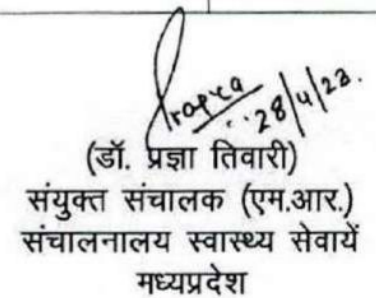 28/4/23.
(डॉ. प्रज्ञा तिवारी)
संयुक्त संचालक (एम.आर.)
संचालनालय स्वास्थ्य सेवायें
मध्यप्रदेश